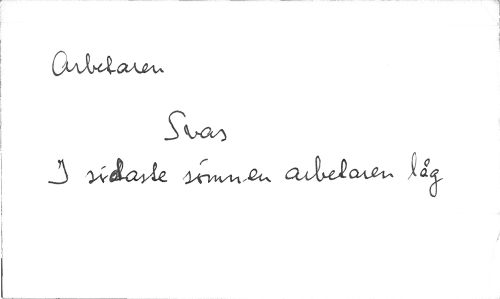 Arbetaren
Svas
I sidaste sömnen arbetaren låg